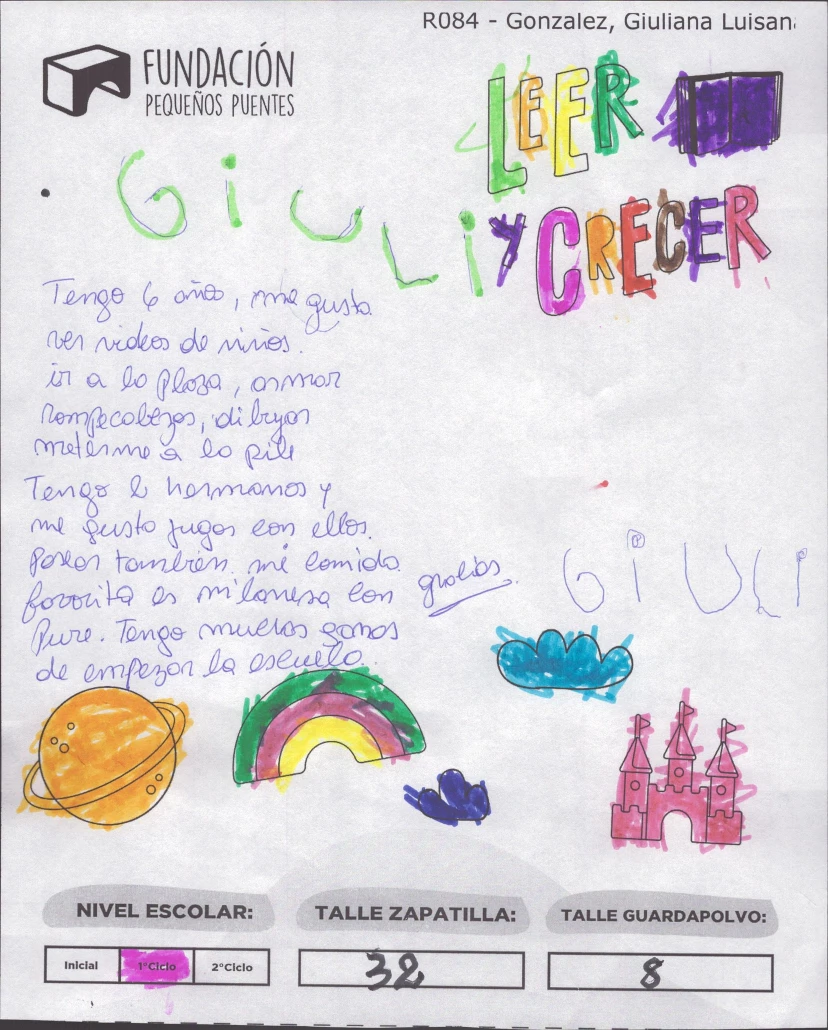 R084 - Gonzalez, Giuliana Luisan
FUNDACIÓN
PEQUEÑOS PUENTES
LEER
Y CRECER
GiULi
Tengo 6 años, me gusta
ver videos de niños.
ir a la plaza, armar
rompecabezas, dibujos
meterme a la pile
Tengo 6 hermanos y
me gusta jugar con ellos.
Pasear tambien. mi comida
favorita es milanesa con
Pure. Tengo muchas ganas
de empezar la escuela.
gracias.
GiULi
NIVEL ESCOLAR:
TALLE ZAPATILLA:
TALLE GUARDAPOLVO:
Inicial 1°Ciclo 2°Ciclo
32
8